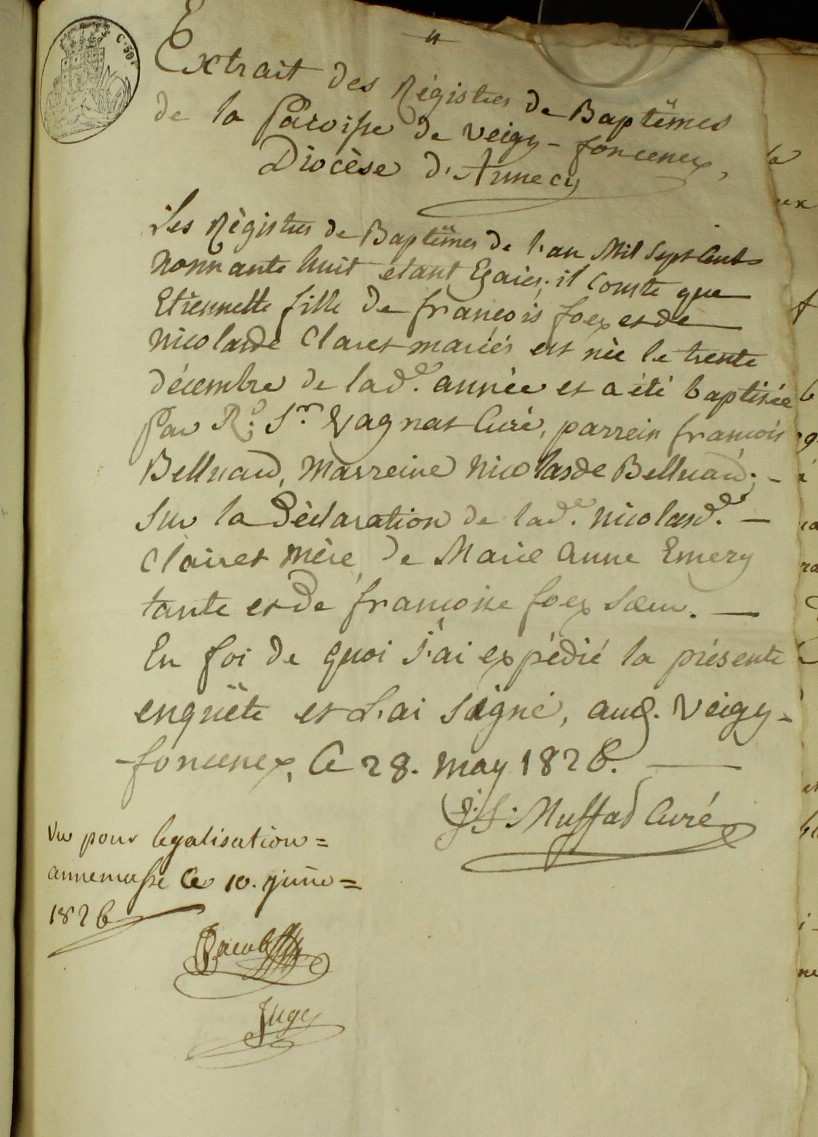 C. 50
4
Extrait des Régistres de Baptêmes
de la Paroisse de Veigy-foncenex,
Diocèse d'Annecy
Les Règistres de Baptêmes de l'an Mil Sept Cent
Nonnante huit etant Egarés, il Conste que
Etiennette fille de françois foex et de
Nicolarde Claret mariés est née le trente
décembre de lad.e année et a été baptisée
Par R.d S.r Vagnat Curé, parrein françois
Belluard, Marreine Nicolarde Belluard. -
Sur la Dèclaration de lad.e Nicolard.de —
Clairet mère, de Marie Anne Emery
tante et de françoise foex sœur. —
En foi de quoi J'ai expédié la présente
enquête et L'ai signé, aud. Veigy-
foncenex, Ce 28. may 1826. —
J: Muffad Curé
Vu pour legalisation =
annemasse Ce 10. juin =
1826
Jacob
Juge